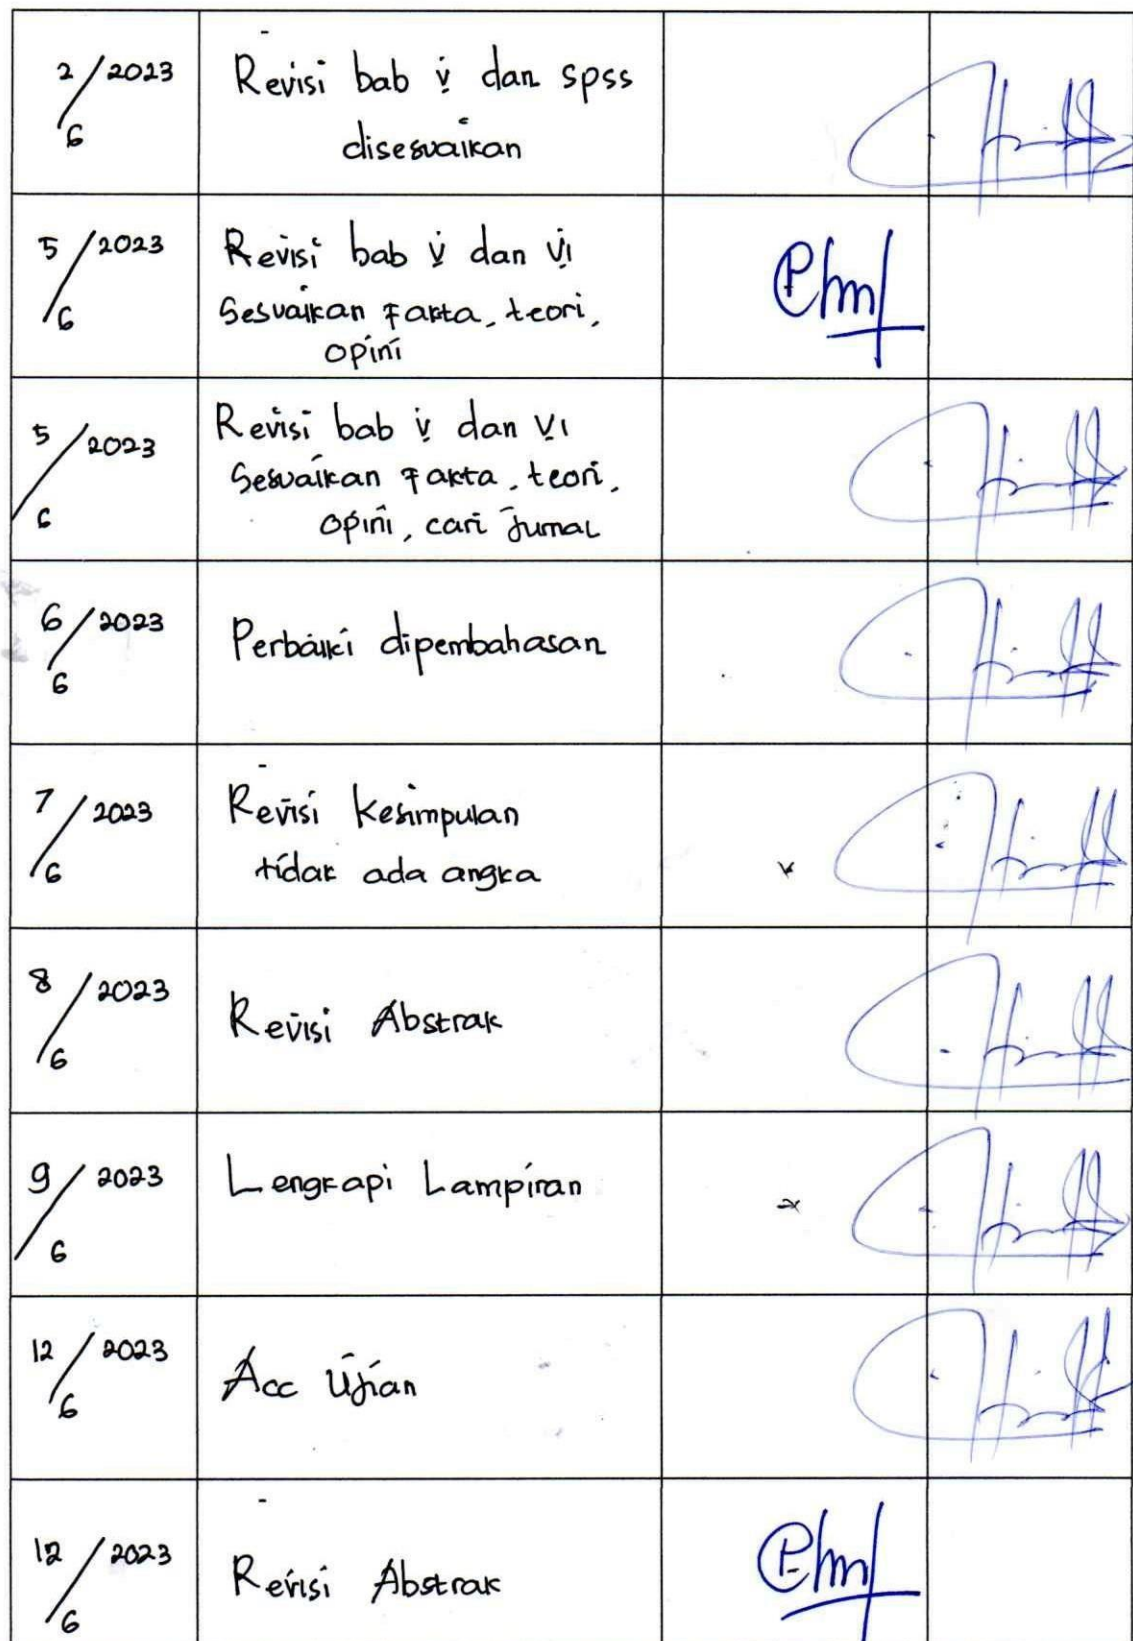 2/6 2023
Revisi bab V dan spss
disesuaikan
5/6 2023
Revisi bab V dan VI
Sesuaikan Fakta, teori,
opini
5/6 2023
Revisi bab V dan VI
Sesuaikan Fakta, teori,
opini, cari Jurnal
6/6 2023
Perbaiki dipembahasan
7/6 2023
Revisi Kesimpulan
tidak ada angka
8/6 2023
Revisi Abstrak
9/6 2023
Lengkapi Lampiran
12/6 2023
Acc Ujian
12/6 2023
Revisi Abstrak